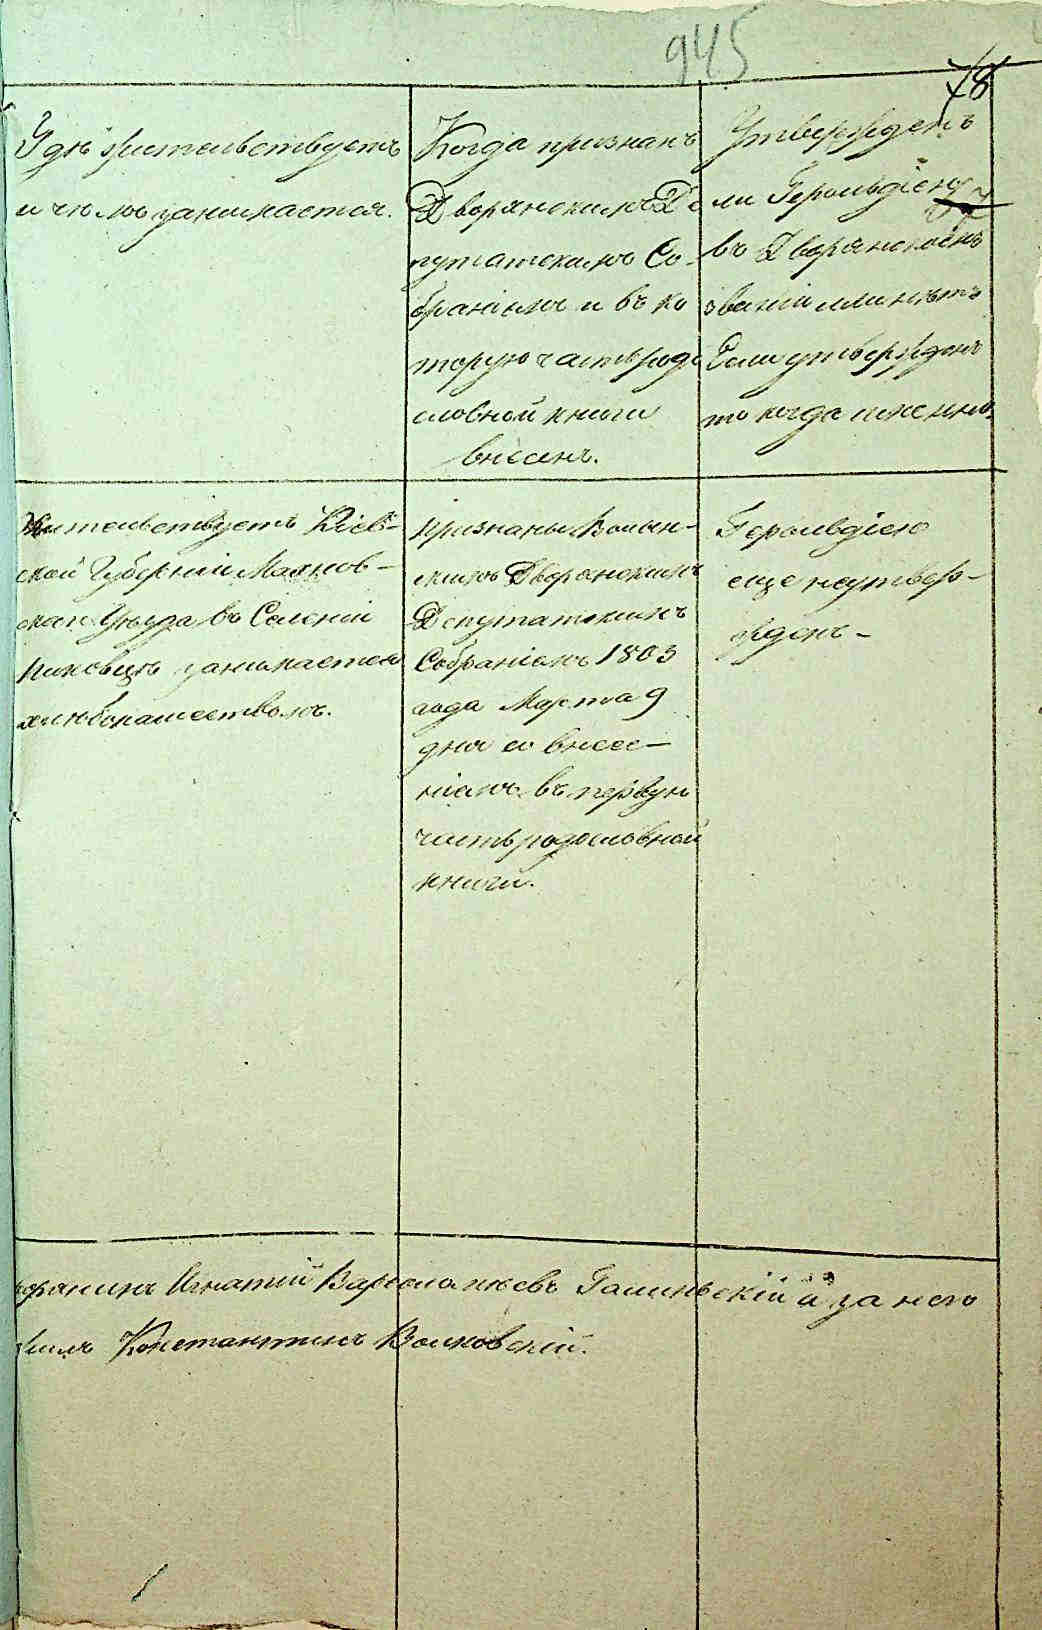 945
78
Гдѣ жительствуетъ
и чѣмъ занимается.
Когда признанъ
Дворянскимъ Де
путатскимъ Со-
браніемъ и въ ко
торую часть родо
словной книги
внесенъ.
Утвержденъ
ли Герольдіею
въ Дворянскомъ
званіи или нѣтъ
Если утвержденъ
то когда именно.
Жительствуетъ Кіев-
ской Губерніи
Уѣзда въ Селеніи
занимается
хлѣбопашествомъ.
Признаны Волын-
скимъ Дворянскимъ
Депутатскимъ
Собраніемъ 1803
года Марта 9
дня со внесе-
ніемъ въ первую
часть родословной
книги.
Герольдіею
еще неутвер-
жденъ-
Игнатій Варфоломѣевъ а за него
Константинъ Волковскій.